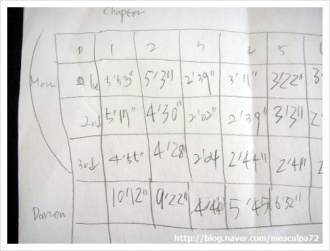 Chapter
1 2 3 4 5
5'3" 2'39" 3'11" 3'22"
2nd 5'17" 4'30" 2'02" 2'39" 3'31"
3rd 4'55" 4'28 2'04 2'44"
10'12" 9'22" 4'46 5'45 6'32"
http://blog.naver.com/meaculpa72